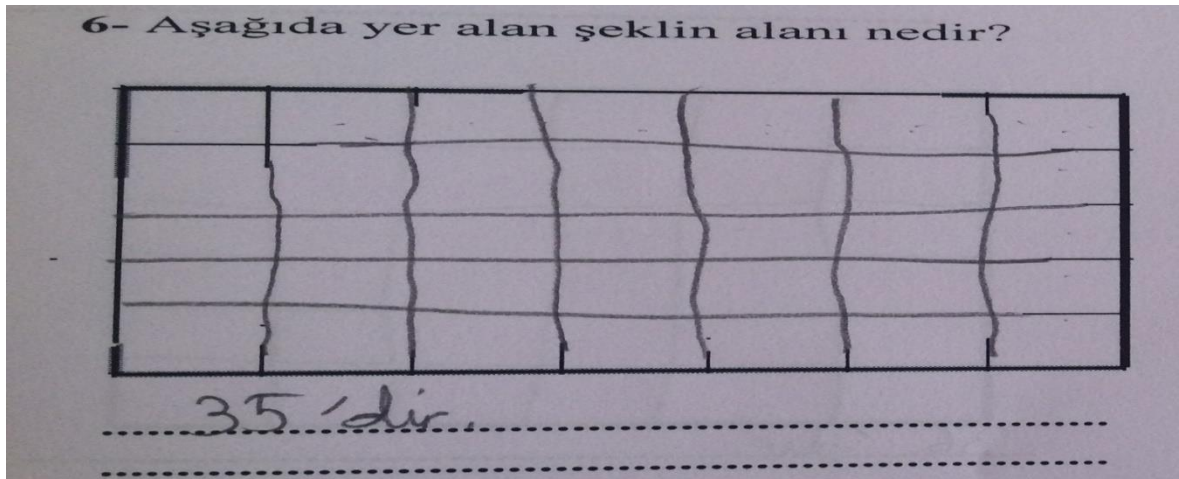 6- Aşağıda yer alan şeklin alanı nedir?
35'dir.